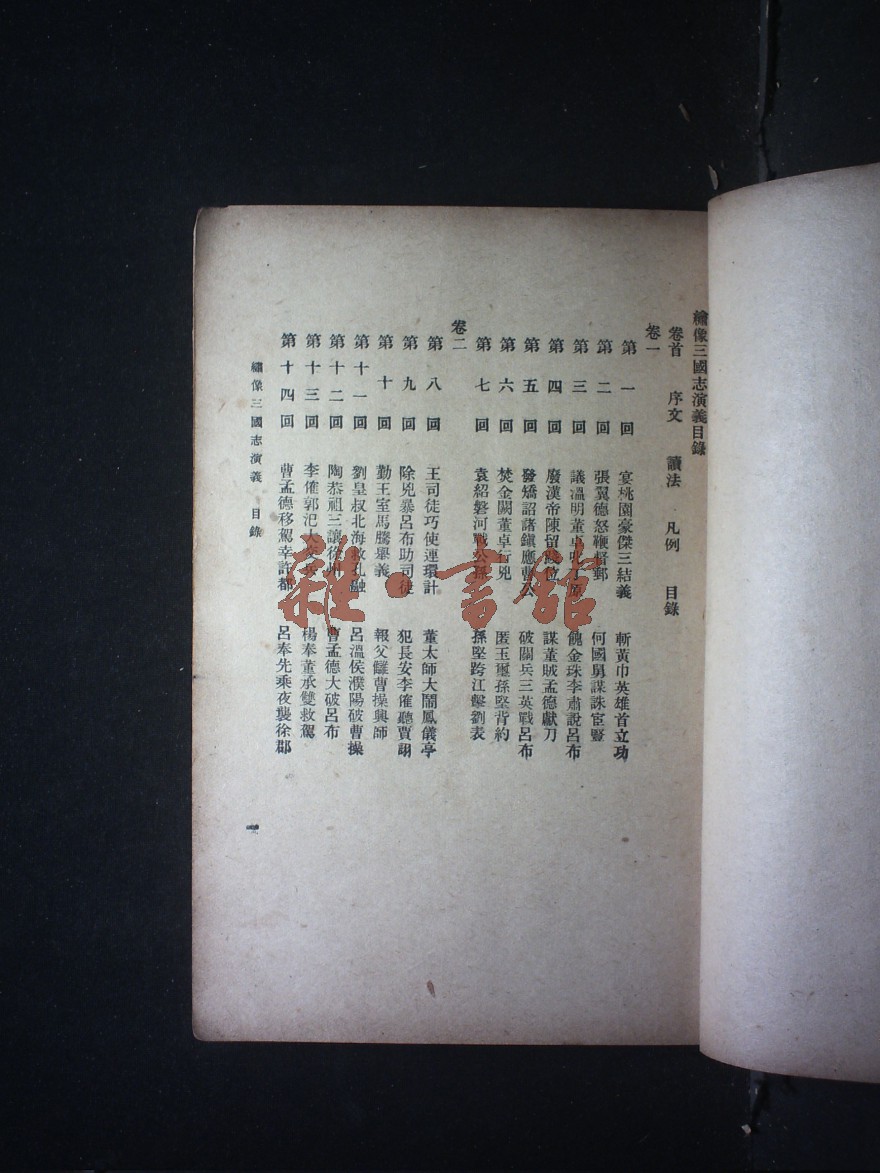 繡像三國志演義目錄
卷首 序文 讀法 凡例 目錄
卷一
第一回 宴桃園豪傑三結義 斬黃巾英雄首立功
第二回 張翼德怒鞭督郵 何國舅謀誅宦豎
第三回 議溫明董卓叱丁原 餽金珠李肅說呂布
第四回 廢漢帝陳留踐位 謀董賊孟德獻刀
第五回 發矯詔諸鎮應曹公 破關兵三英戰呂布
第六回 焚金闕董卓行兇 匿玉璽孫堅背約
第七回 袁紹磐河戰公孫 孫堅跨江擊劉表
卷二
第八回 王司徒巧使連環計 董太師大鬧鳳儀亭
第九回 除兇暴呂布助司徒 犯長安李傕聽賈詡
第十回 勤王室馬騰舉義 報父讎曹操興師
第十一回 劉皇叔北海救孔融 呂溫侯濮陽破曹操
第十二回 陶恭祖三讓徐州 曹孟德大破呂布
第十三回 李傕郭汜大交兵 楊奉董承雙救駕
第十四回 曹孟德移駕幸許都 呂奉先乘夜襲徐郡
繡像三國志演義 目錄
雜·書館